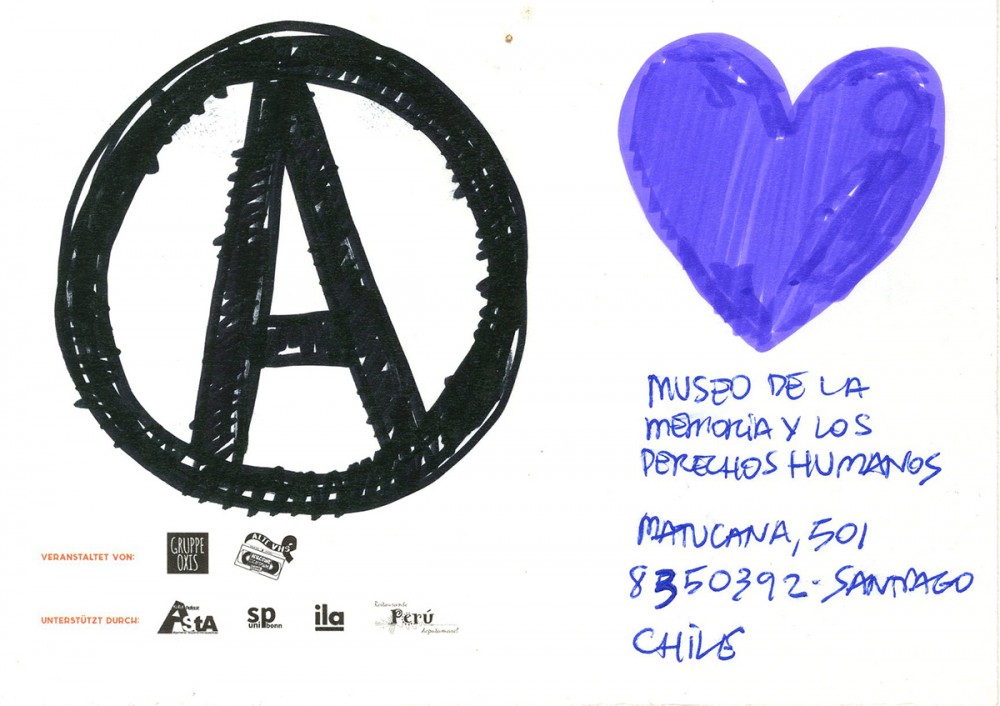 A
VERANSTALTET VON:
GRUPPE
OXIS
UNTERSTÜTZT DURCH:
AStA
sp
uni bonn
ila
Restaurante
Perú
MUSEO DE LA
MEMORIA Y LOS
DERECHOS HUMANOS
MATUCANA, 501
8350392- SANTIAGO
CHILE